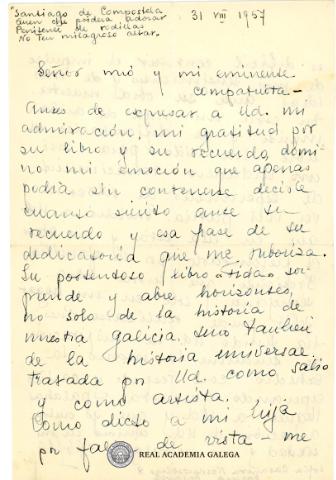 Santiago de Compostela
quen che poidera adorar
Penitente de rodillas
No teu milagroso altar.
31 VIII 1957
Señor mio y mi eminente
compatriota—
Antes de expresar a Ud. mi
admiración, mi gratitud por
su libro y su recuerdo, domi
no mi emoción que apenas
podría sin contenerse decirle
cuanto siento ante su
recuerdo y esa frase de su
dedicatoria que me ruboriza.
Su portentoso libro sor
prende y abre horizontes,
no solo de la historia de
nuestra galicia, sinó tambien
de la historia universal
tratada por Ud. como sabio
y como artista.
Como dicto a mi hija
por falta de vista — me
REAL ACADEMIA GALEGA